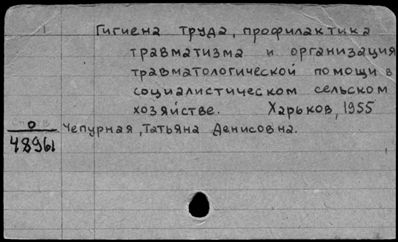 Гигиена труда, профилактика
травматизма и организация
травматологической помощи в
социалистическом сельском
хозяйстве. Харьков, 1955
Чепурная, Татьяна Денисовна.
0
48961